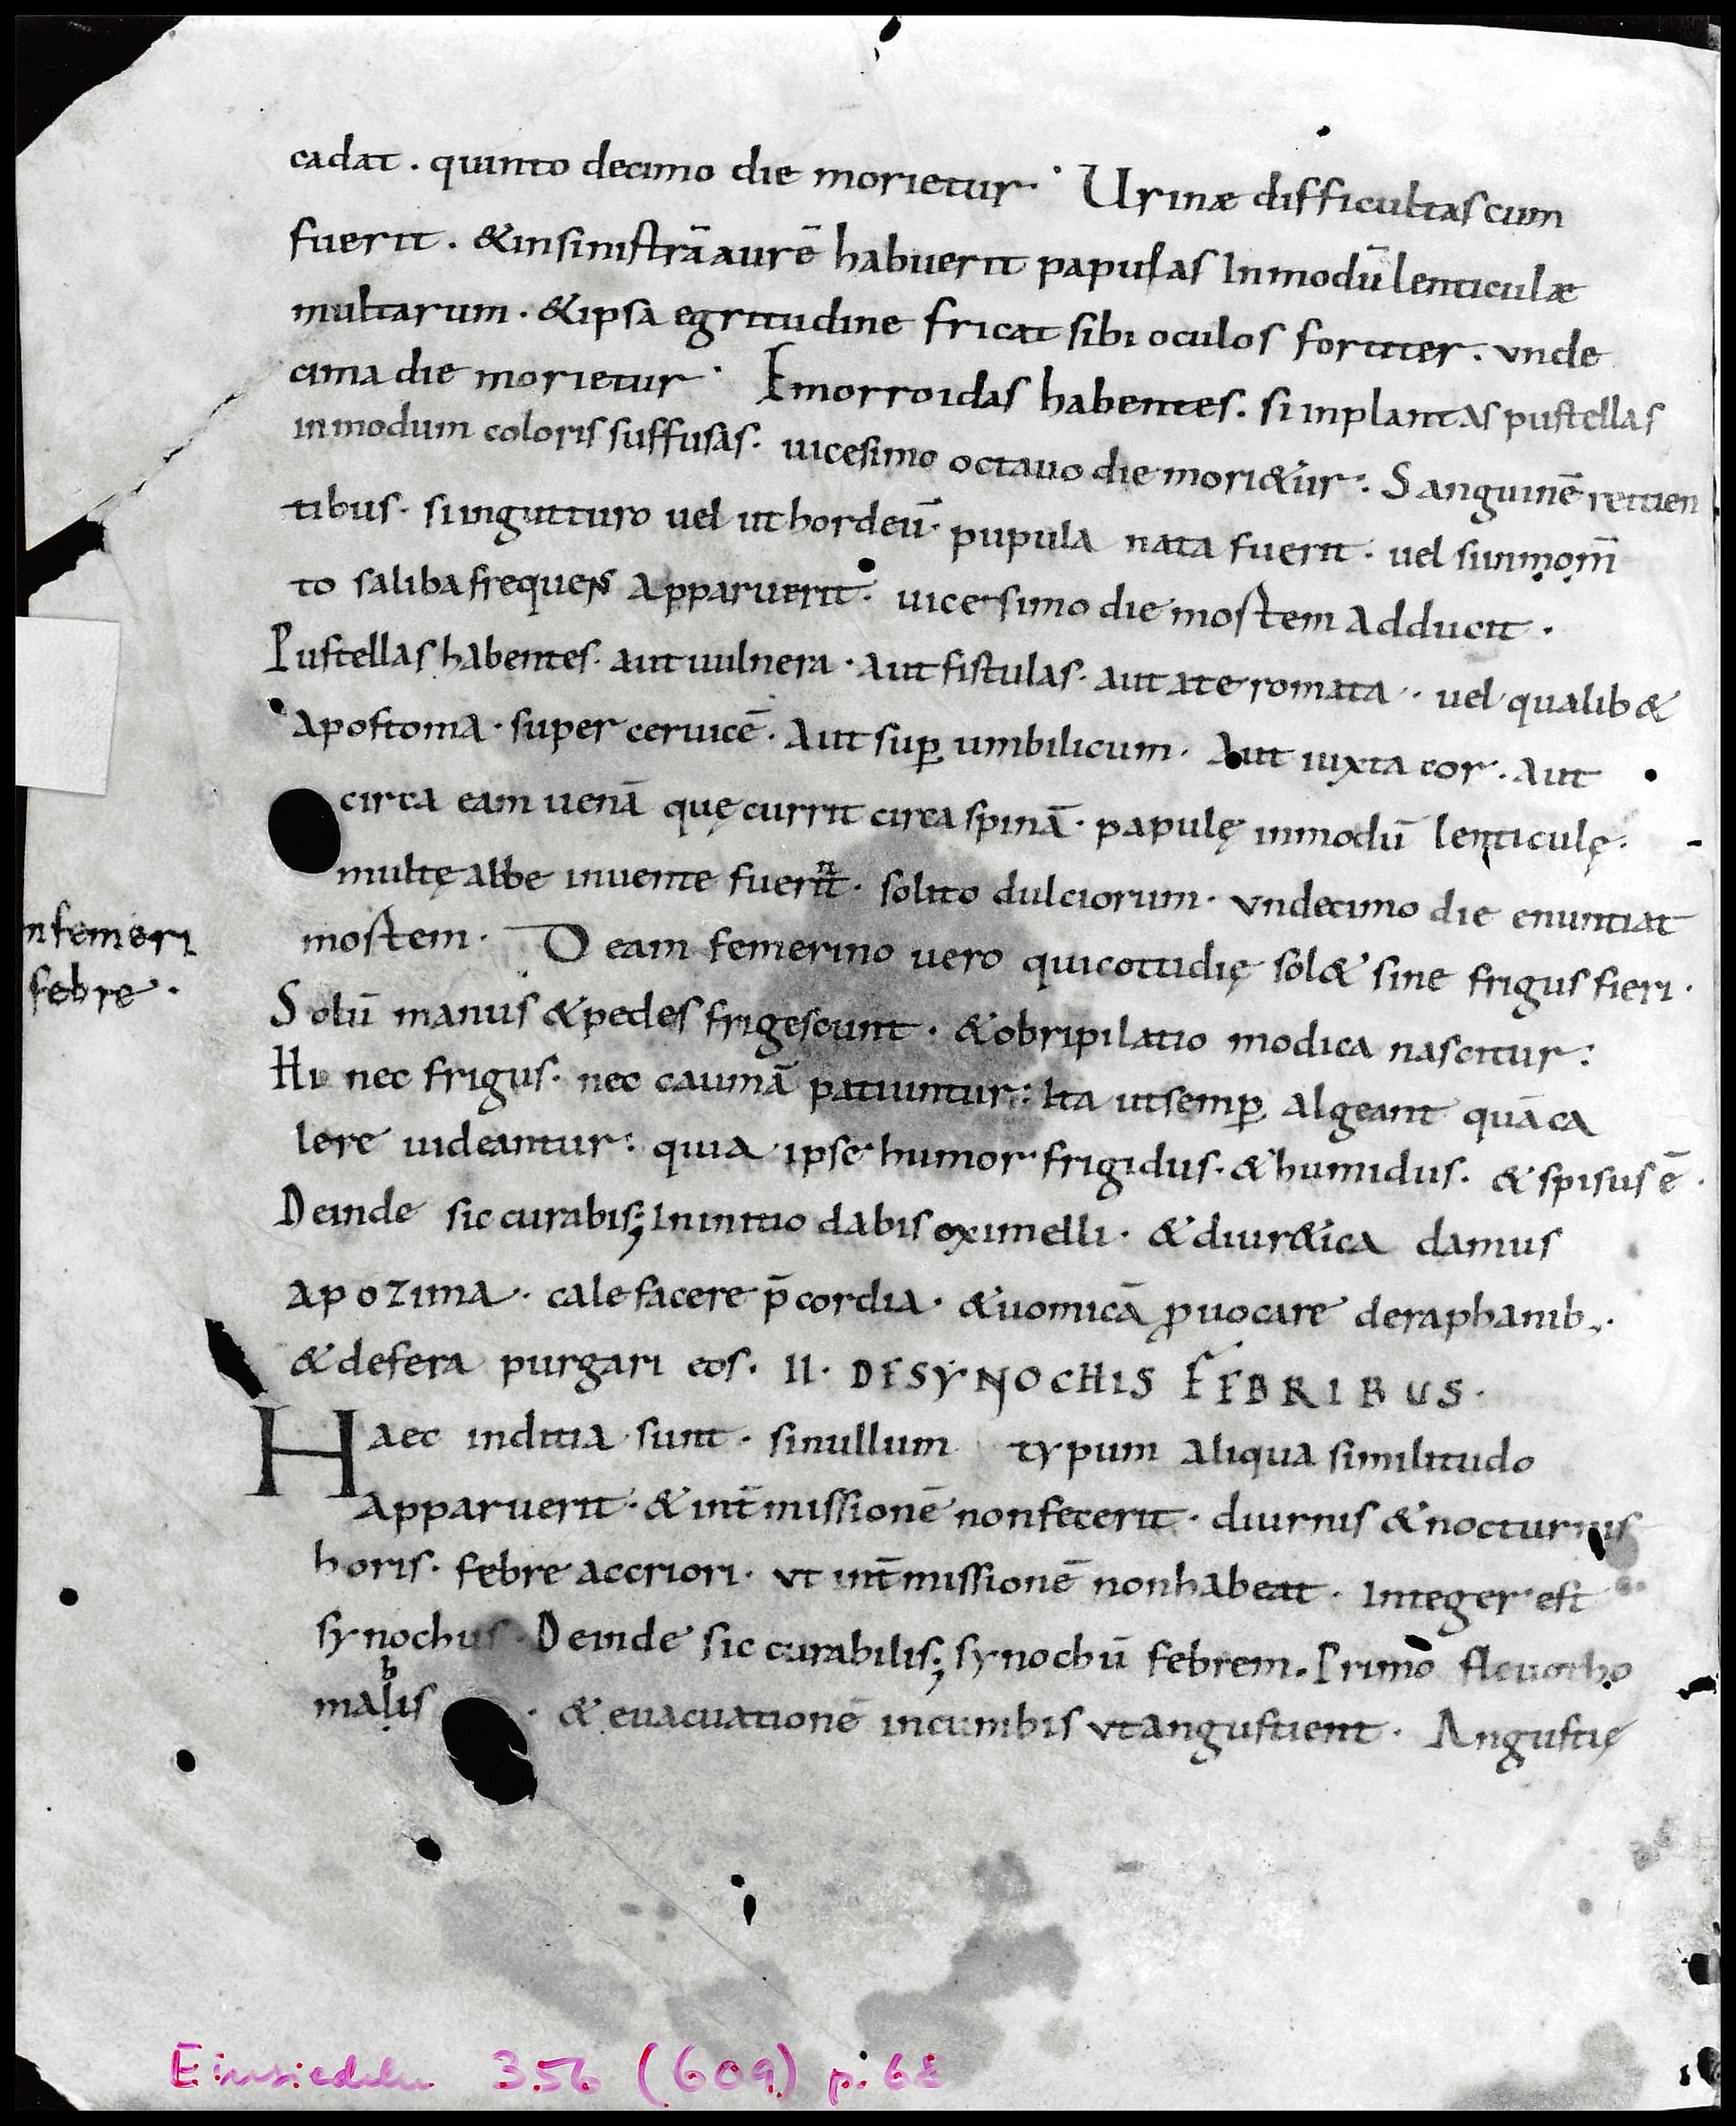 cadat . quinto decimo die morietur · Urinæ difficultas cum
fuerit . & in sinistrā aurē habuerit papulas In modū lenticulæ
multarum . & ipsa egritudine fricat sibi oculos fortiter . unde
cima die morietur · Emorroidas habentes . si in plantas pustellas
in modum coloris suffusas . uicesimo octauo die mori&ur : Sanguinē reitien
tibus . si in gutturo uel ut hordeū . pupula nata fuerit . uel sunmom̄
to saliba frequens apparuerit . uicesimo die mostem adducit .
Pustellas habentes . aut uulnera . aut fistulas . aut ateromata . uel qualib&
apostoma . super ceruicē . aut suꝑ umbilicum . Aut iuxta cor . aut
circa eam uenā quę currit circa spinā . papulę in modū lenticulę .
multę albe inuente fuerit . solito dulciorum . undecimo die enuntiat
mostem . D eam femerino uero qui cottidię sol& sine frigus fieri .
nfemeri
febre .
Solū manus & pedes frigescunt . & obripilatio modica nascitur :
Hi nec frigus . nec caumā patiuntur : Ita ut semꝑ algeant quā ca
lere uideantur : quia ipse humor frigidus . & humidus . & spisus ē .
Deinde sic curabis ; In initio dabis oximelli . & diur&ica damus
apozima . calefacere p̄cordia . & uomicā ꝓuocare de raphanib; .
& de fera purgari eos . II . DE SYNOCHIS FEBRIBUS .
Haec inditia sunt . si nullum typum aliqua similitudo
apparuerit . & int̄missionē non fecerit . diurnis & nocturnis
horis . febre accriori . ut int̄missionē non habeat . Integer est
synochus . Deinde sic curabilis ; synochū febrem . Primo fleuotho
malis . & euacuationē incumbis ut angustient . Angustię
Einsiedeln 356 (609) p. 68